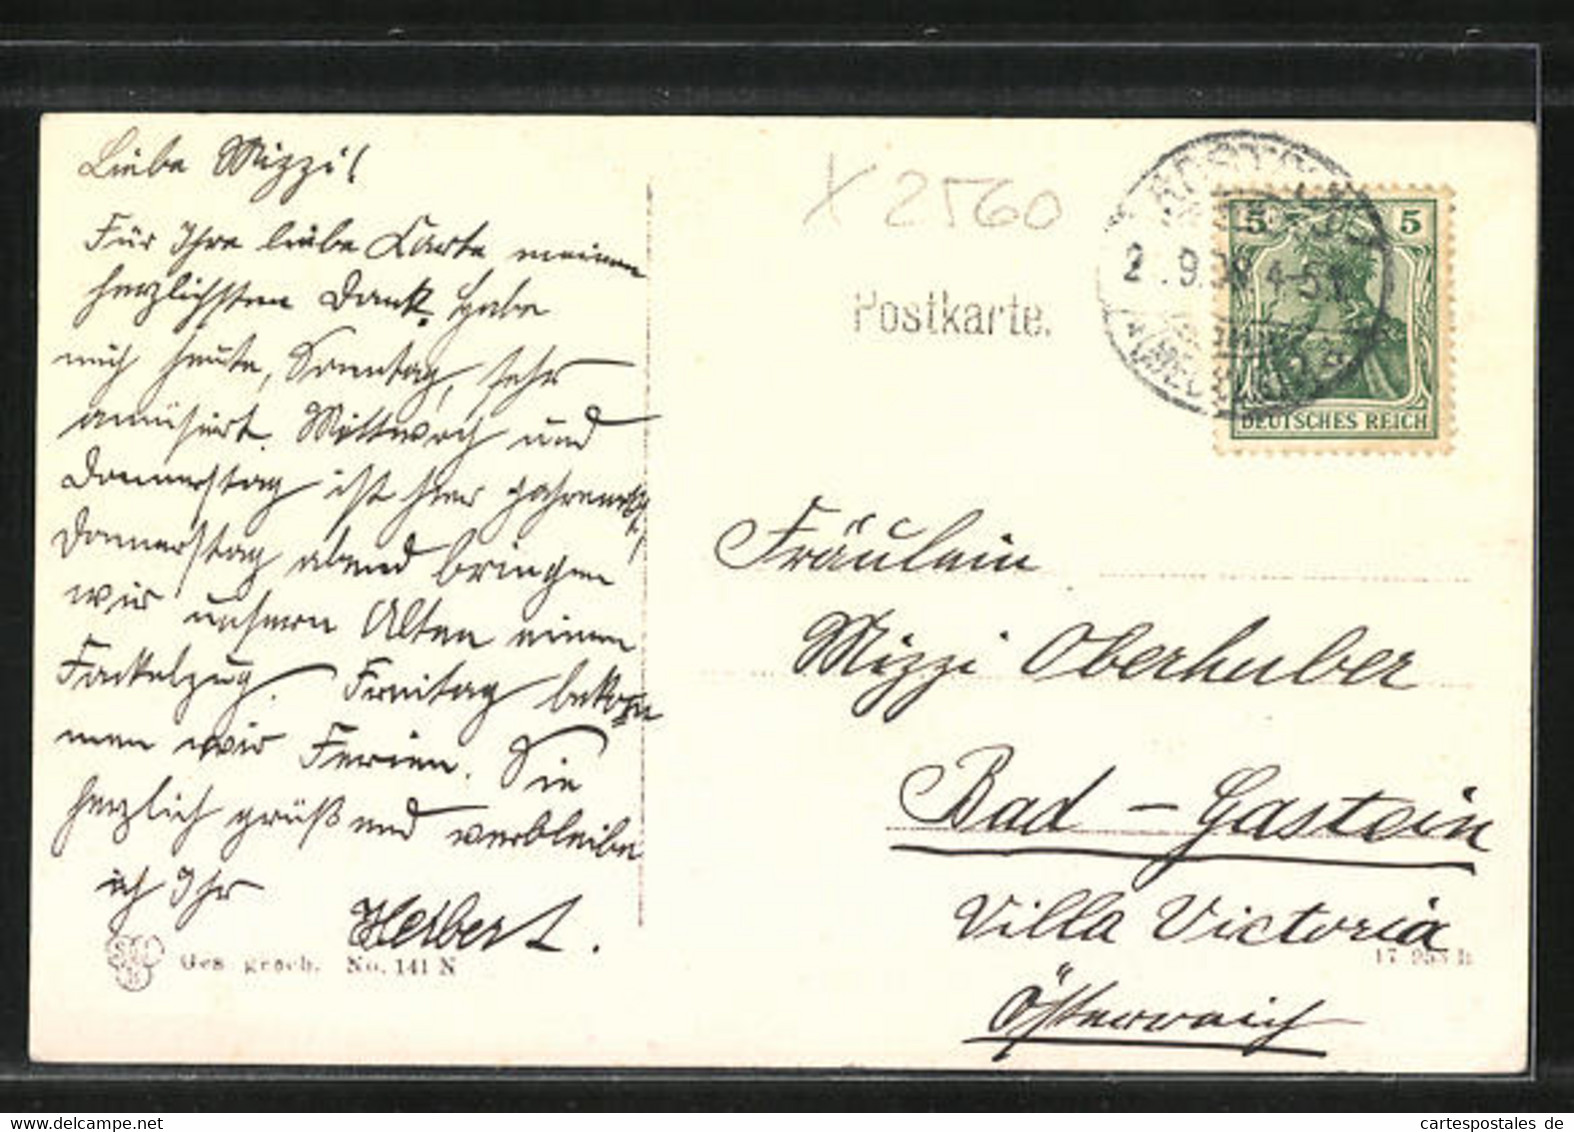 Liebe Mizzi!
Für Ihre liebe Karte meinen
herzlichsten Dank. Habe
mich heute, Sonntag, sehr
amüsiert. Mittwoch und
Donnerstag ist hier
Donnerstag abend bringen
wir unsern Alten einen
Fackelzug. Freitag bekom
men wir Ferien. Sie
herzlich grüßend verbleibe
ich Ihr Herbert.
Ges. gesch. No. 141 N
X 2560
Postkarte.
5 5
DEUTSCHES REICH
4-5
Fräulein
Mizzi Oberhuber
Bad-Gastein
Villa Victoria
Österreich
cartespostales de